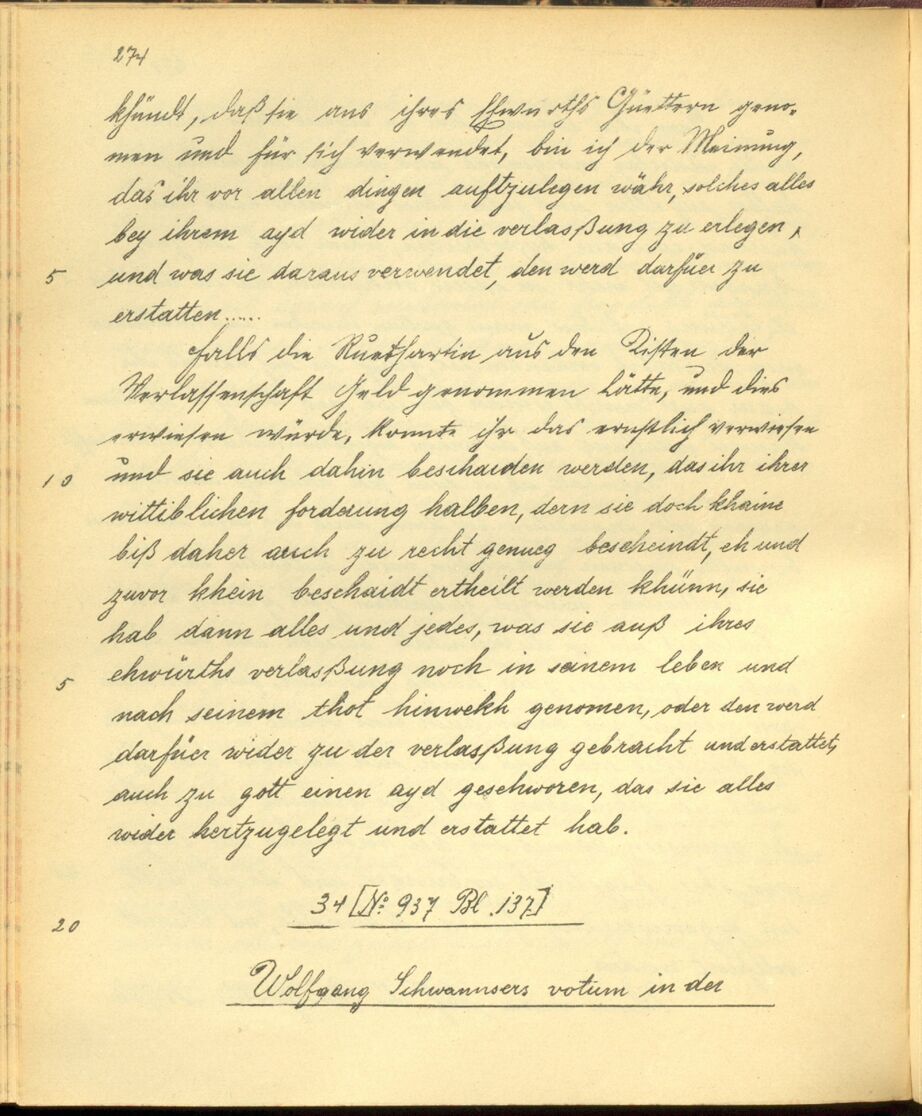 274
khündt, daß sie aus ihres Ehwürths Güettern geno-
men und für sich verwendet, bin ich der Meinung,
das ihr vor allen dingen auftzulegen währ, solches alles
bey ihrem ayd wider in die verlasßung zu erlegen,
5 und was sie daraus verwendet, den werd darfüer zu
erstatten.....
Falls die Ruethartin aus den Kisten der
Verlassenschaft Geld genommen hätte, und dies
erwiesen würde, konnte ihr das ernstlich verwiesen
10 und sie auch dahin beschaiden werden, das ihr ihrer
wittiblichen forderung halben, dern sie doch khaine
biß daher auch zu recht genueg bescheindt, eh und
zuvor khein beschaidt ertheilt werden khünn, sie
hab dann alles und jedes, was sie auß ihres
5 ehwürths verlasßung noch in seinem leben und
nach seinem thot hinwekh genomen, oder den werd
darfüer wider zu der verlasßung gebracht und erstattet,
auch zu gott einen ayd geschworen, das sie alles
wider hertzugelegt und erstattet hab.
34 [No 937 Bl. 137]
20
Wolfgang Schwannsers votum in der